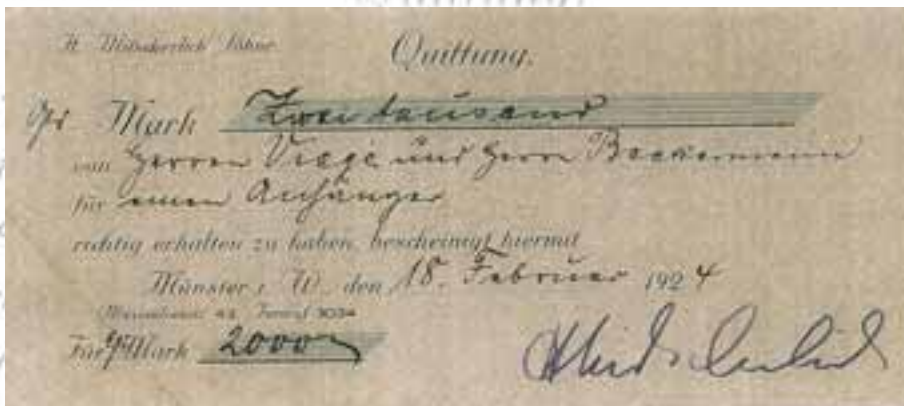 Quittung.
Mark Zweitausend
von Herren Viege und Herrn Beckermann
für einen Anhänger
richtig erhalten zu haben, bescheinigt hiermit
Münster i. W., den 18. Februar 1924
Für G Mark 2000